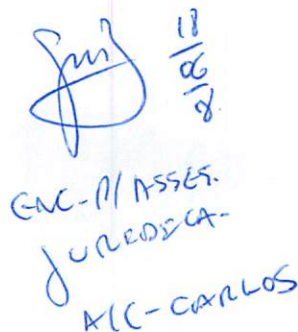 8/06/18
ENC-P/ ASSES.
JURÍDICA-
A/C-CARLOS